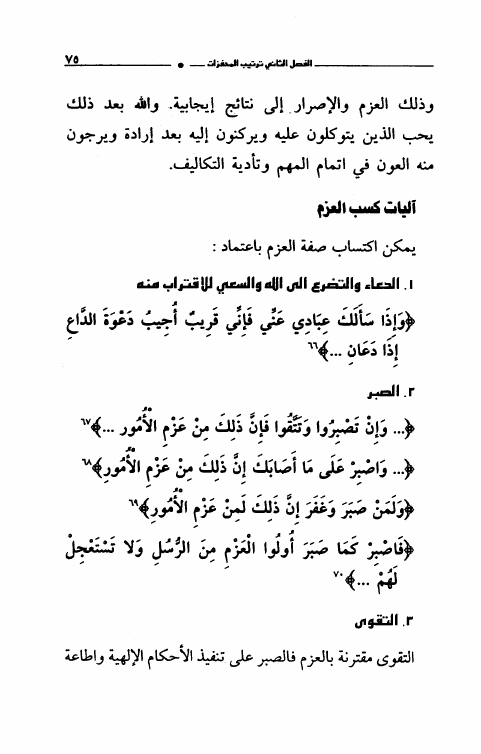 الفصل الثاني ترتيب المحفزات ٧٥
وذلك العزم والإصرار إلى نتائج إيجابية. والله بعد ذلك
يحب الذين يتوكلون عليه ويركنون إليه بعد إرادة ويرجون
منه العون في اتمام المهم وتأدية التكاليف.
آليات كسب العزم
يمكن اكتساب صفة العزم باعتماد :
١. الدعاء والتضرع الى الله والسعي للاقتراب منه
﴿وَإِذَا سَأَلَكَ عِبَادِي عَنِّي فَإِنِّي قَرِيبٌ أُجِيبُ دَعْوَةَ الدَّاعِ
إِذَا دَعَانِ ...﴾٦٦
٢. الصبر
﴿... وَإِنْ تَصْبِرُوا وَتَتَّقُوا فَإِنَّ ذَلِكَ مِنْ عَزْمِ الْأُمُورِ ...﴾٦٧
﴿... وَاصْبِرْ عَلَى مَا أَصَابَكَ إِنَّ ذَلِكَ مِنْ عَزْمِ الْأُمُورِ﴾٦٨
﴿وَلَمَنْ صَبَرَ وَغَفَرَ إِنَّ ذَلِكَ لَمِنْ عَزْمِ الْأُمُورِ﴾٦٩
﴿فَاصْبِرْ كَمَا صَبَرَ أُولُوا الْعَزْمِ مِنَ الرُّسُلِ وَلَا تَسْتَعْجِلْ
لَهُمْ ...﴾٧٠
٣. التقوى
التقوى مقترنة بالعزم فالصبر على تنفيذ الأحكام الإلهية واطاعة